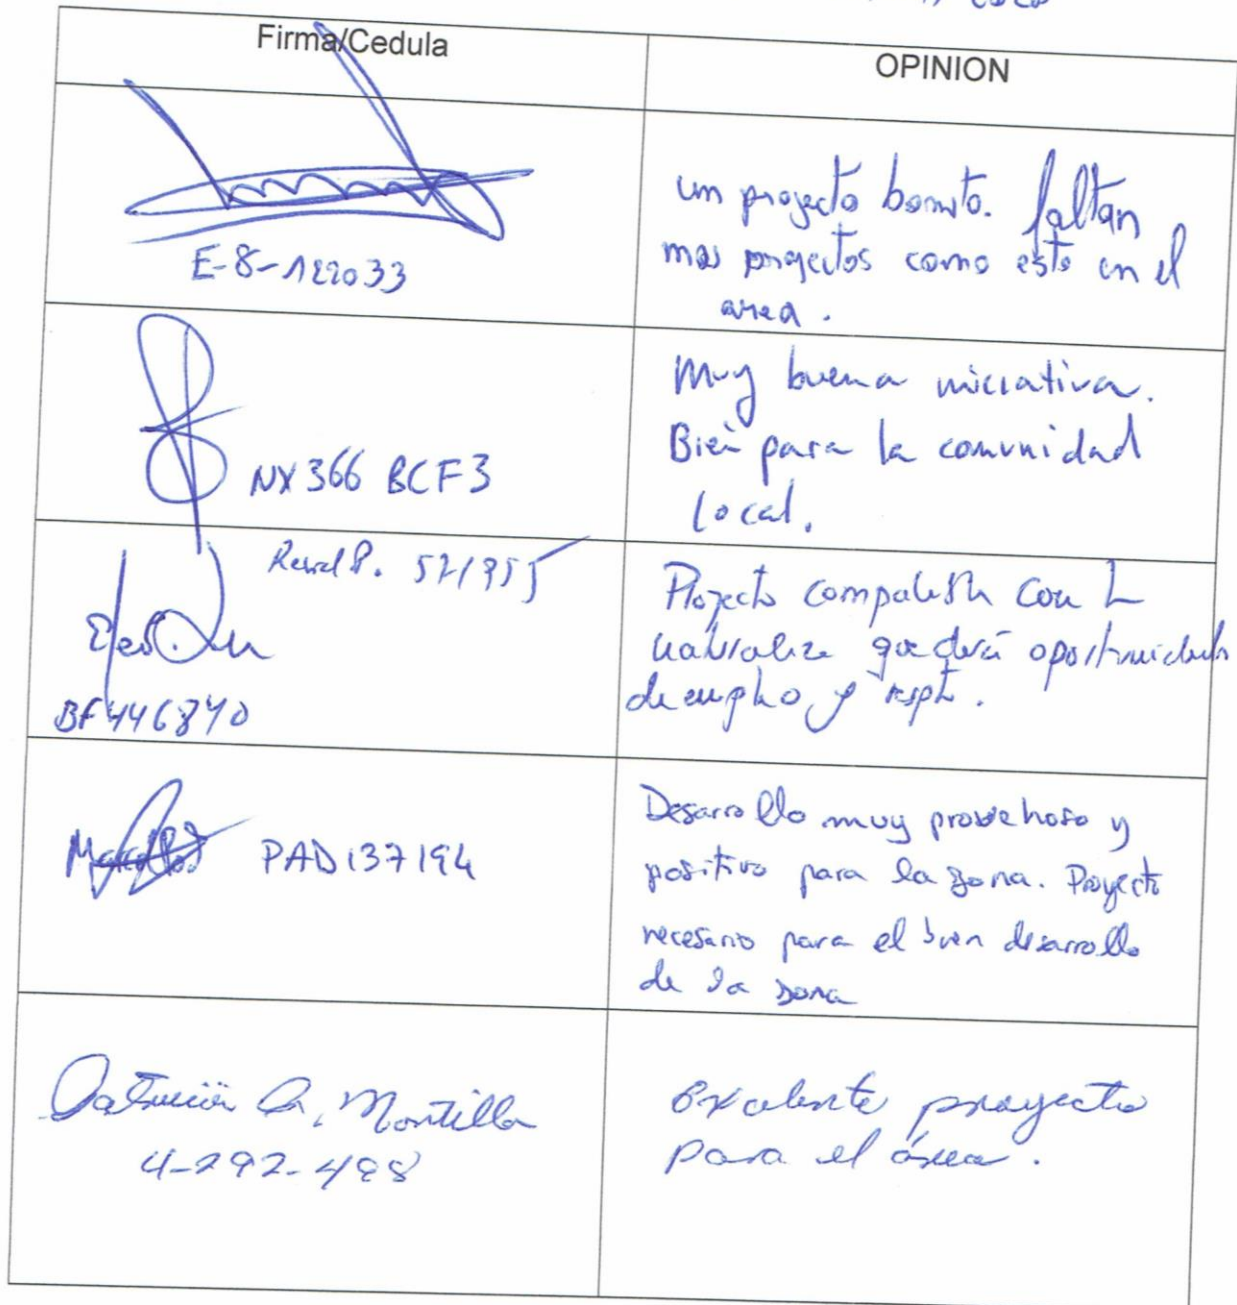 coco
Firma/Cedula
OPINION
E-8-122033
un proyecto bonito. faltan
mas proyectos como este en el
area.
NX366 BCF3
Muy buena iniciativa.
Bien para la comunidad
local.
BF446840
Proyecto compatible con la
naturaleza que dará oportunidades
de empleo y
PAD137194
Desarrollo muy provechoso y
positivo para la zona. Proyecto
necesario para el buen desarrollo
de la zona
Montilla
4-292-498
Excelente proyecto
para el área.